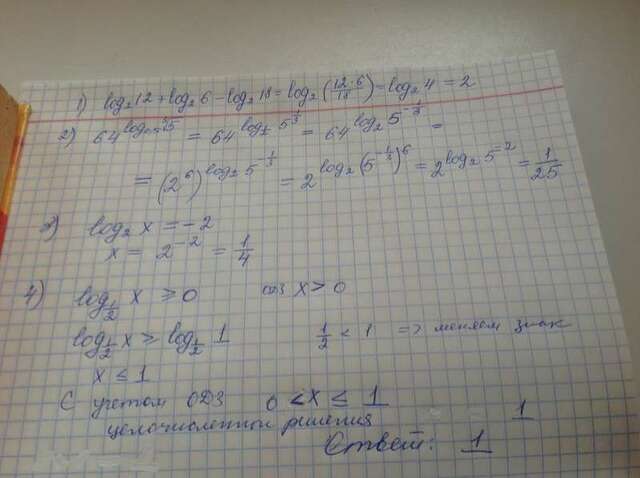 1) log₂12 + log₂6 − log₂18 = log₂(12·6/18) = log₂4 = 2
2) 64^log = 64^log_{1/2} 5^{1/3} = 64^log₂5^{-1/3} =
= (2⁶)^log₂5^{-1/3} = 2^log₂(5^{-1/3})⁶ = 2^log₂5⁻² = 1/25
3) log₂x = −2
x = 2⁻² = 1/4
4) log_{1/2} x ≥ 0 ОДЗ x > 0
log_{1/2} x ≥ log_{1/2} 1 1/2 < 1 => меняем знак
x ≤ 1
С учетом ОДЗ 0 < x ≤ 1
целочисленной решения 1
Ответ: 1